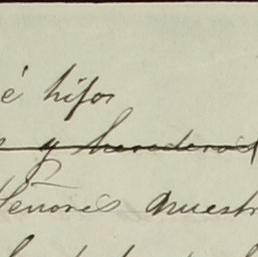 é hijos
y herederos
Señores nuestr